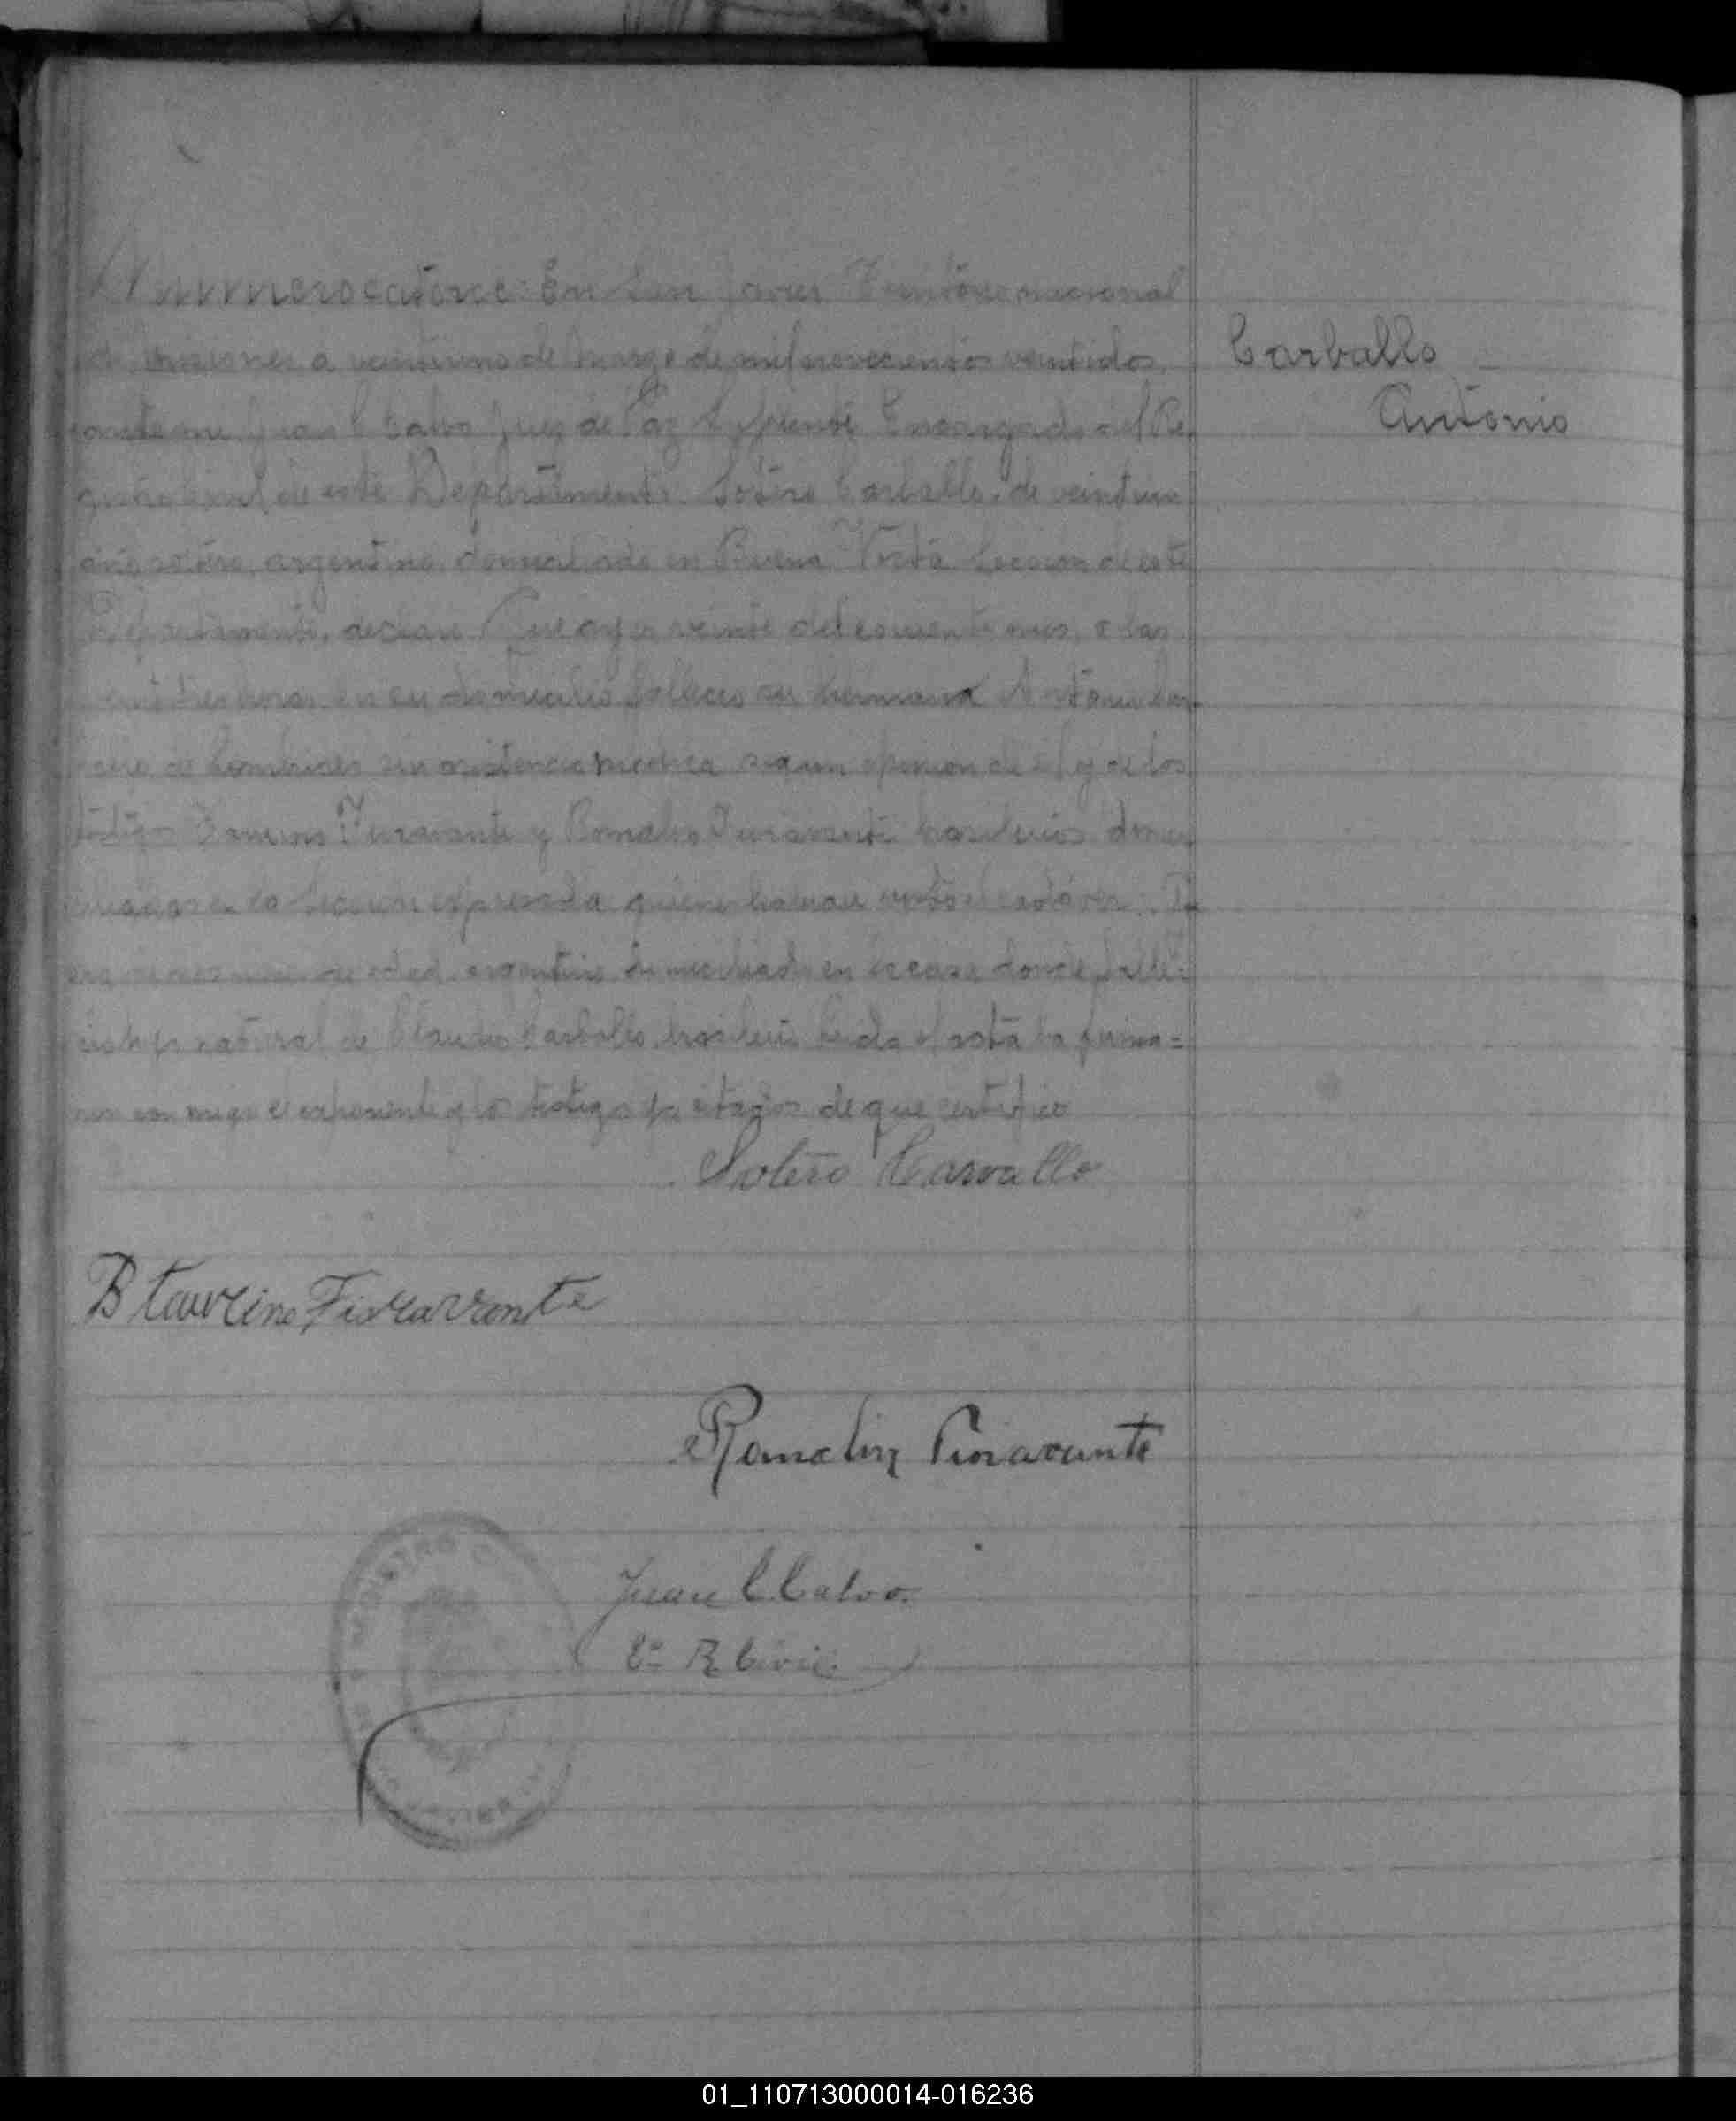 Numero catorce En San Javier Territorio nacional
de Misiones a veintiuno de Marzo de mil novecientos veintidos,
Carballo
ante mi Juan C Calvo Juez de Paz Suplente Encargado del Re
Antonio
gistro Civil de este Departamento. Sotero Carballo, de veintiun
años soltero, argentino, domiciliado en Buena Vista Seccion de este
Departamento, declaró Que ayer veinte del corriente mes, a las
horas en su domicilio falleció su hermano Antonio Car
de lombrices sin asistencia medica segun opinion de el y de los
testigos Fioravante y Romalin Fioravante brasileros domi
ciliados en la Seccion expresada quienes habian visto el cadáver. Que
era de edad, argentino domiciliado en la casa donde falle
ció hijo natural de Carballo, brasilera Leida el acta la firma=
ron conmigo el exponente y los testigos ya citados de que certifico
Sotero Carvallo
B taurino Fioravante
Romalin Fioravante
Juan C. Calvo.
E= R. Civil
REGISTRO C
JAVIER
01_110713000014-016236